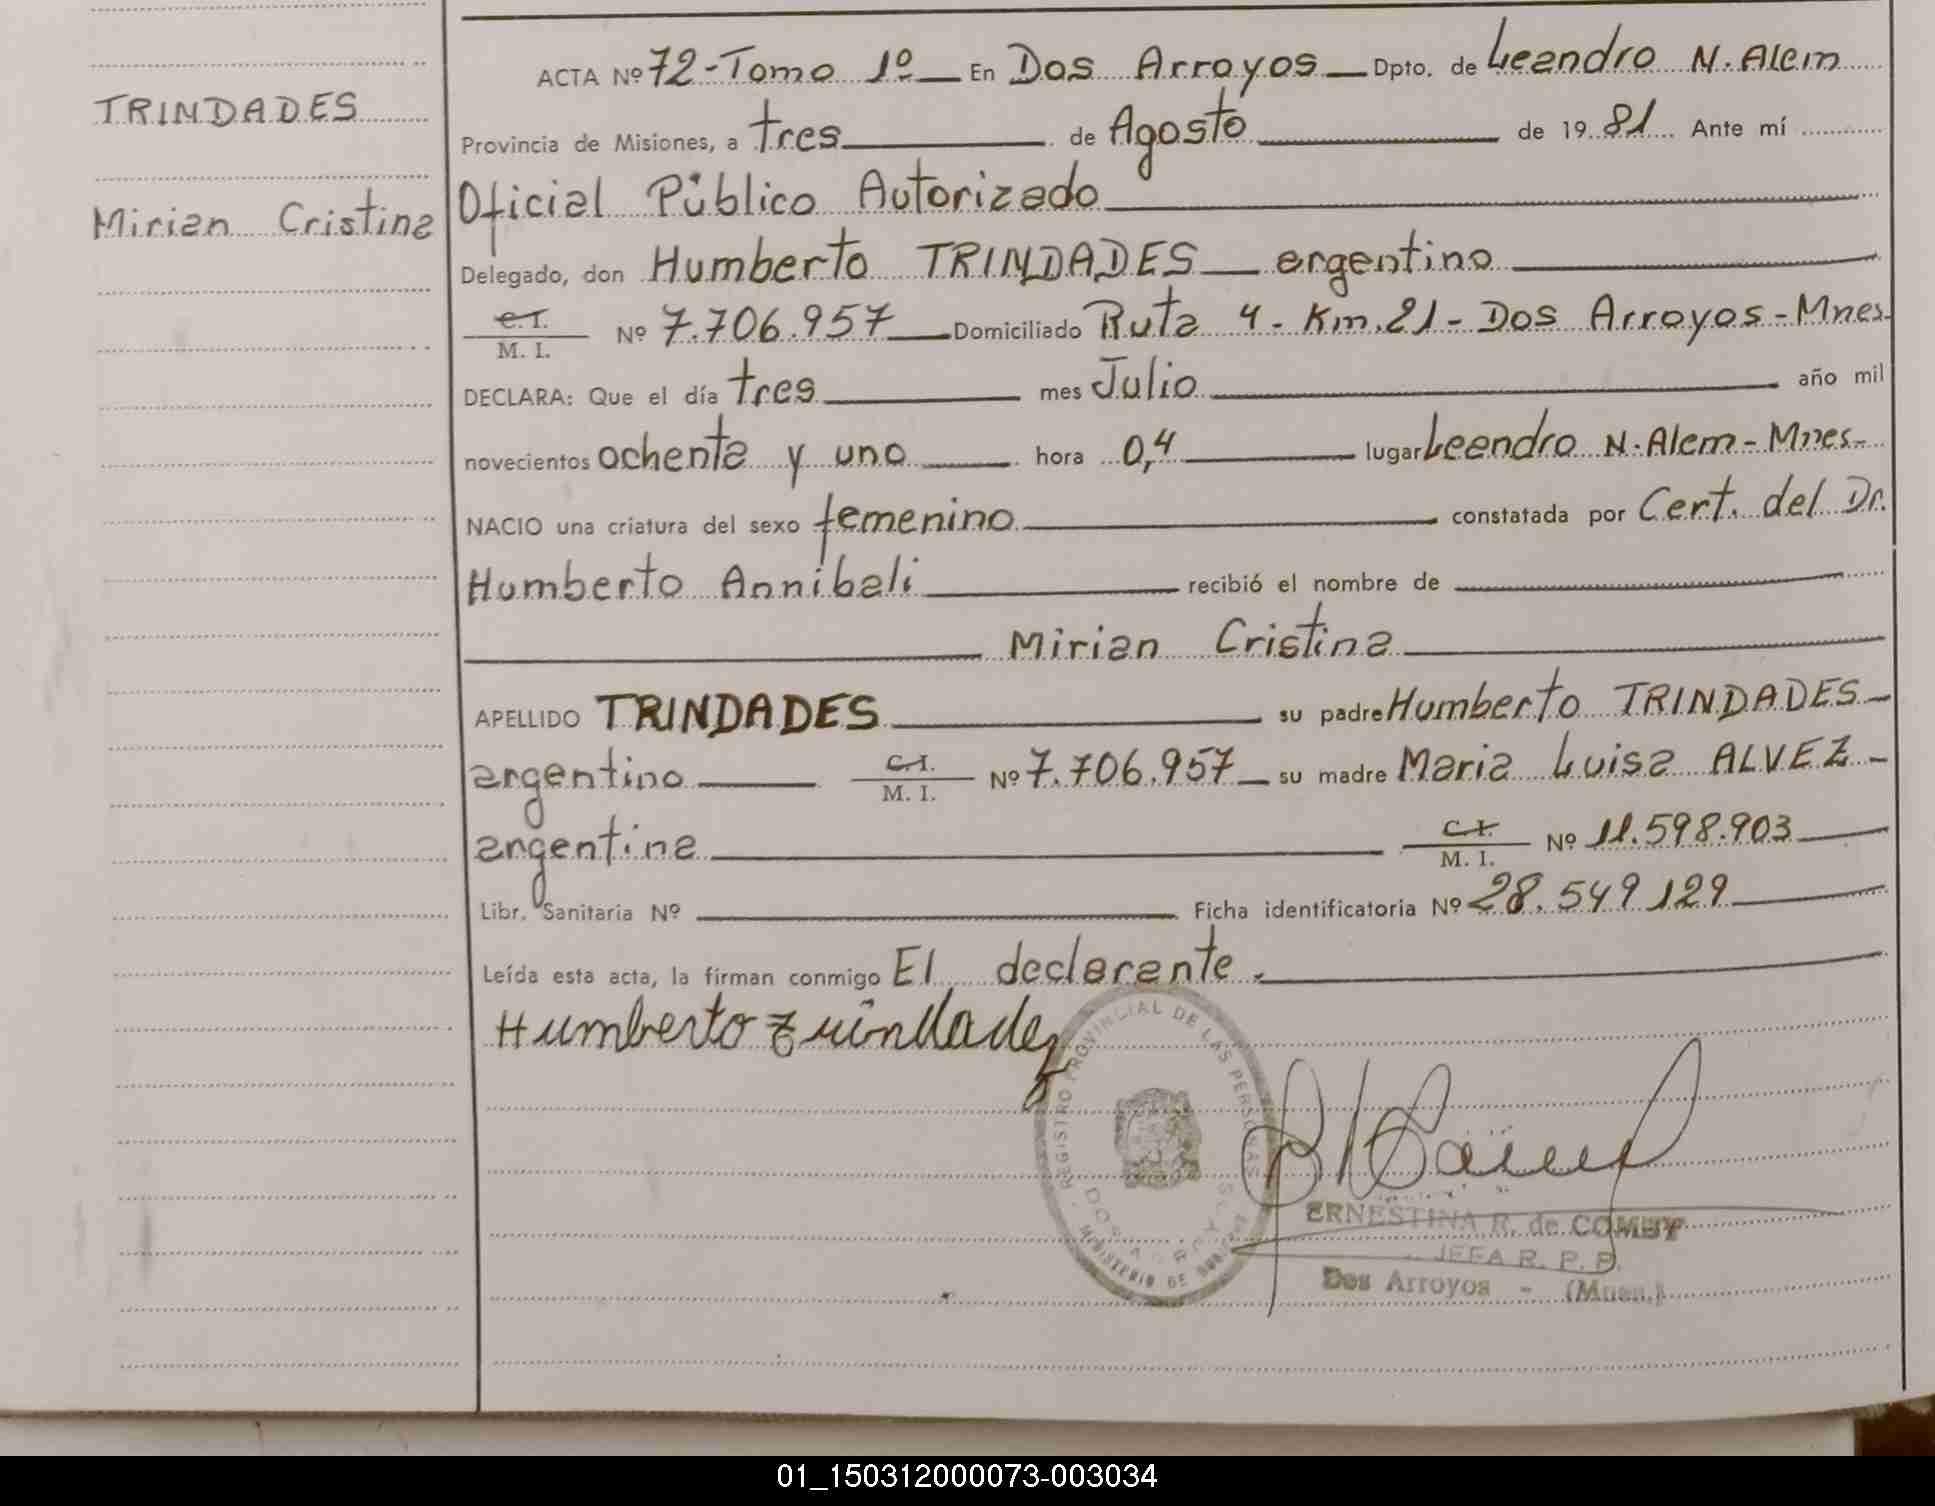 TRINDADES
Mirian Cristina
ACTA Nº 72-Tomo 1º En Dos Arroyos Dpto. de Leandro N. Alem
Provincia de Misiones, a tres de Agosto de 19 81 Ante mí
Oficial Público Autorizado
Delegado, don Humberto TRINDADES argentino
C.I.
M. I. Nº 7.706.957 Domiciliado Ruta 4 - Km. 21 - Dos Arroyos - Mnes.
DECLARA: Que el día tres mes Julio año mil
novecientos ochenta y uno hora 0,4 lugar Leandro N. Alem - Mnes-
NACIO una criatura del sexo femenino constatada por Cert. del Dr.
Humberto Annibali recibió el nombre de
Mirian Cristina
APELLIDO TRINDADES su padre Humberto TRINDADES -
argentino C.I. M. I. Nº 7.706.957 su madre Maria Luisa ALVEZ -
argentina C.I. M. I. Nº 11.598.903
Libr. Sanitaria Nº Ficha identificatoria Nº 28.549.129
Leída esta acta, la firman conmigo El declarante.
Humberto Trindadez
REGISTRO PROVINCIAL DE LAS PERSONAS
DOS ARROYOS
MINISTERIO DE
ERNESTINA R. de
JEFA R. P. P.
Dos Arroyos - (Mnes.)
01_150312000073-003034